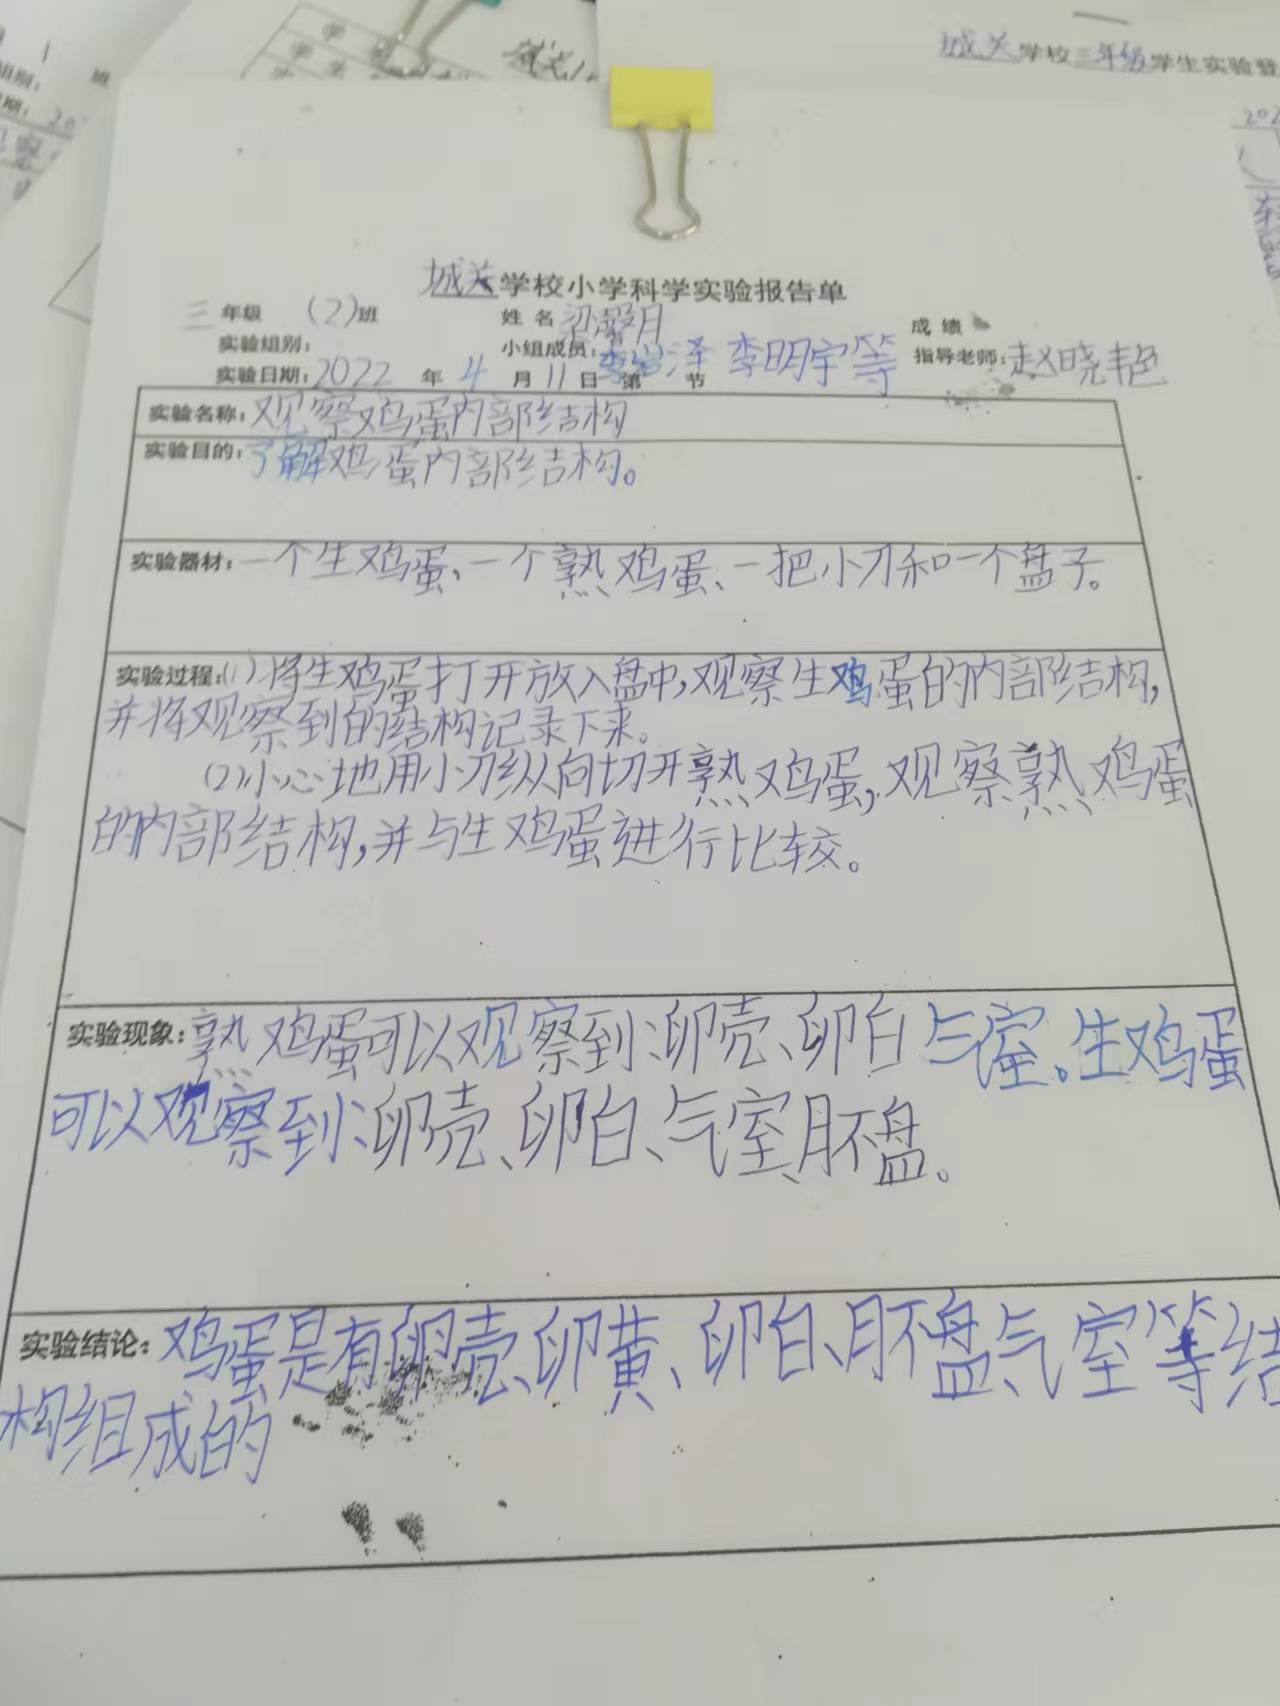 城关学校三年级学生实验登
城关学校小学科学实验报告单
三年级 (2)班 姓名 梁 月 成绩
实验组别: 小组成员: 李 泽 李明宇等 指导老师:赵晓艳
实验日期:2022年4月11日 第 节
实验名称:观察鸡蛋内部结构
实验目的:了解鸡蛋内部结构。
实验器材:一个生鸡蛋、一个熟鸡蛋、一把小刀和一个盘子。
实验过程:(1)将生鸡蛋打开放入盘中,观察生鸡蛋的内部结构,
并将观察到的结构记录下来。
(2)小心地用小刀纵向切开熟鸡蛋,观察熟鸡蛋
的内部结构,并与生鸡蛋进行比较。
实验现象:熟鸡蛋可以观察到:卵壳、卵白 气室。生鸡蛋
可以观察到:卵壳、卵白、气室、胚盘。
实验结论:鸡蛋是有卵壳、卵黄、卵白、胚盘、气室等结
构组成的